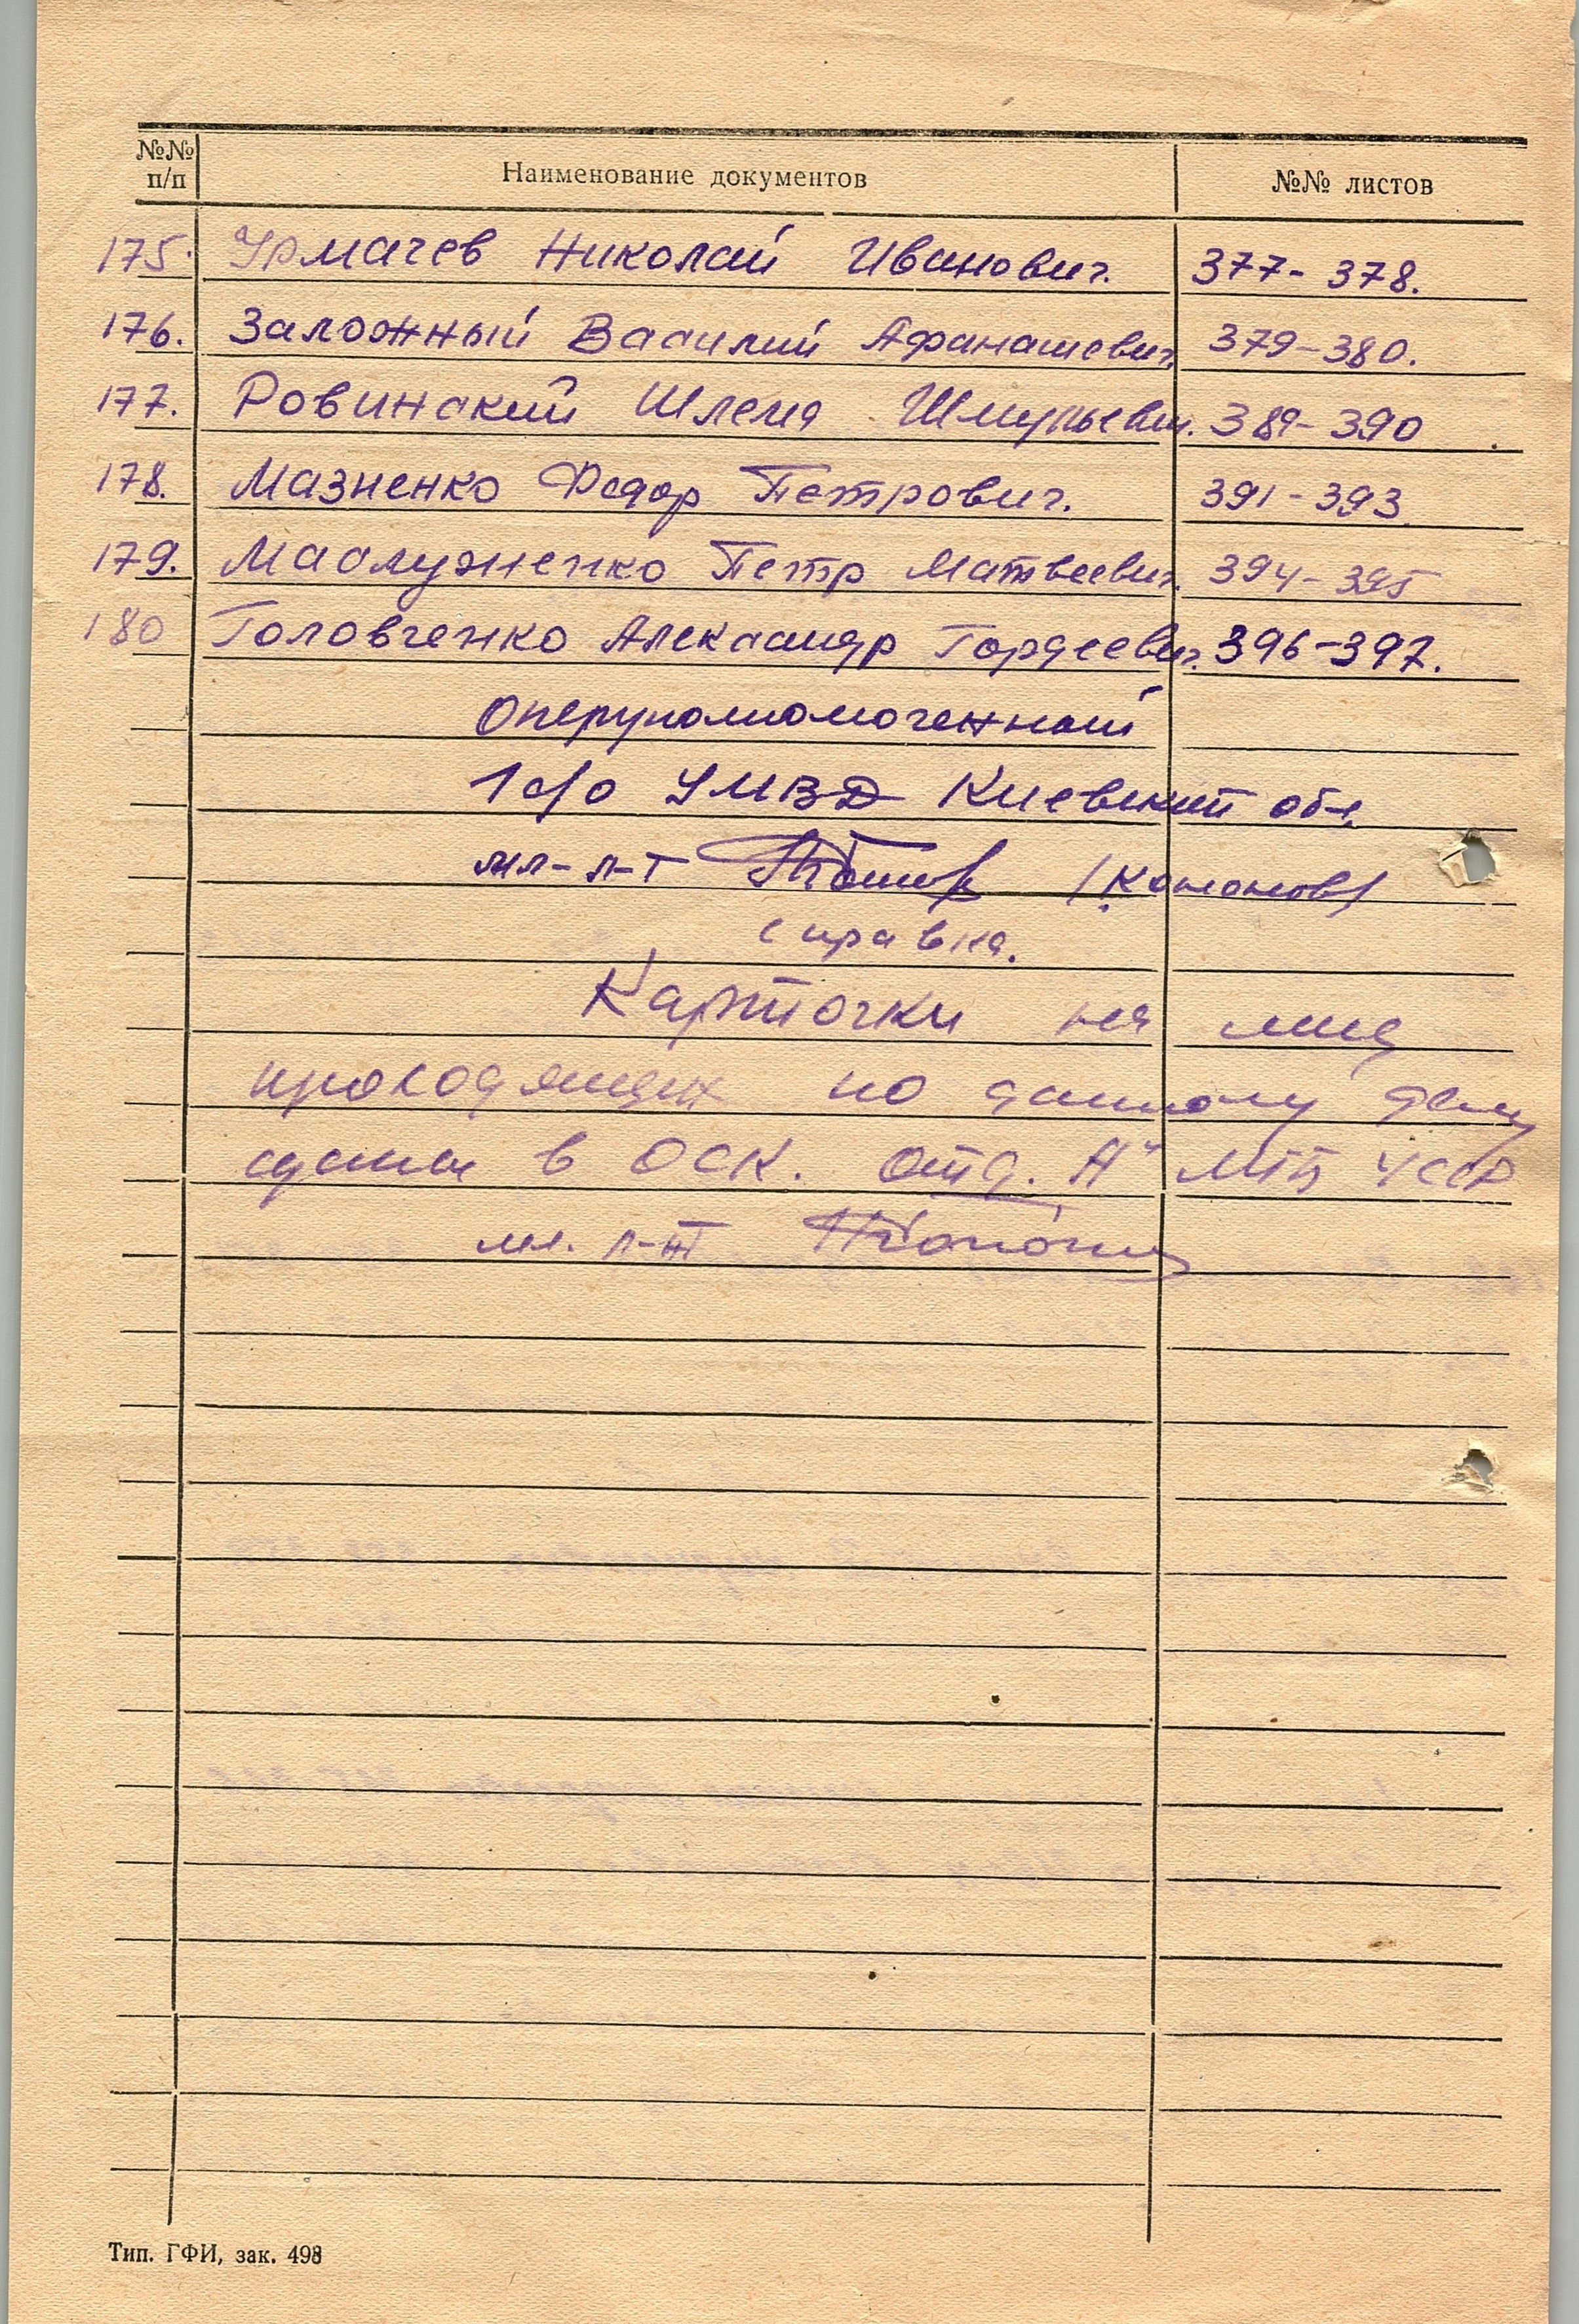 №№ п/п Наименование документов №№ листов
175. Урмачев Николай Иванович. 377-378.
176. Заложный Василий Афанасиевич. 379-380.
177. Ровинский Шлема Шмульевич. 389-390
178. Мазненко Федор Петрович. 391-393
179. Маслузненко Петр Матвеевич. 394-395
180 Головченко Александр Гордеевич. 396-397.
Оперуполномоченный
1 с/о УМВД Киевской обл.
мл-л-т (Кононов)
Справка.
Карточки на лиц
проходящих по данному делу
сданы в ОСК. отд. "А" МГБ УССР
мл. л-нт
Тип. ГФИ, зак. 498